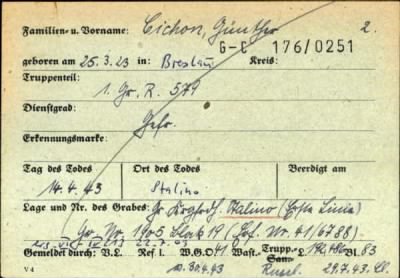 Familien- u. Vorname: Cichon, Günther 2.
G-C 176/0251
geboren am 25.3.23 in: Breslau Kreis:
Truppenteil:
1. Gr. R. 579
Dienstgrad:
Gefr.
Erkennungsmarke:
Tag des Todes Ort des Todes Beerdigt am
14.4.43 Stalino
Lage und Nr. des Grabes: Stalino
Gr. Nr. 1905 Block 19
Gemeldet durch: V.L. Ref. I W.G.O. 41 Wast. Trupp. Bl. 83
V 4 30.4.43 29.7.43